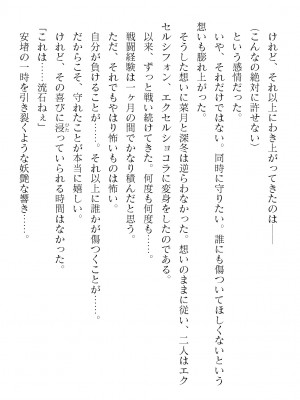 けれど、それ以上にわき上がってきたのは――
（こんなの絶対に許せない）
という感情だった。
いや、それだけではない。同時に守りたい。誰にも傷ついてほしくないという
想いも膨れ上がった。
そうした想いに菜月と深冬は逆らわなかった。想いのままに従い、二人はエク
セルシフォン、エクセルショコラに変身をしたのである。
以来、ずっと戦い続けてきた。何度も何度も……。
戦闘経験は一ヶ月の間でかなり積んだと思う。
ただ、それでもやはり怖いものは怖い。
自分が負けることが……。それ以上に誰かが傷つくことが……。
だからこそ、守れたことが本当に嬉しい。
けれど、その喜びに浸っていられる時間はなかった。
安堵の一時を引き裂くような妖艶な響き……。
「これは……流石ねぇ」